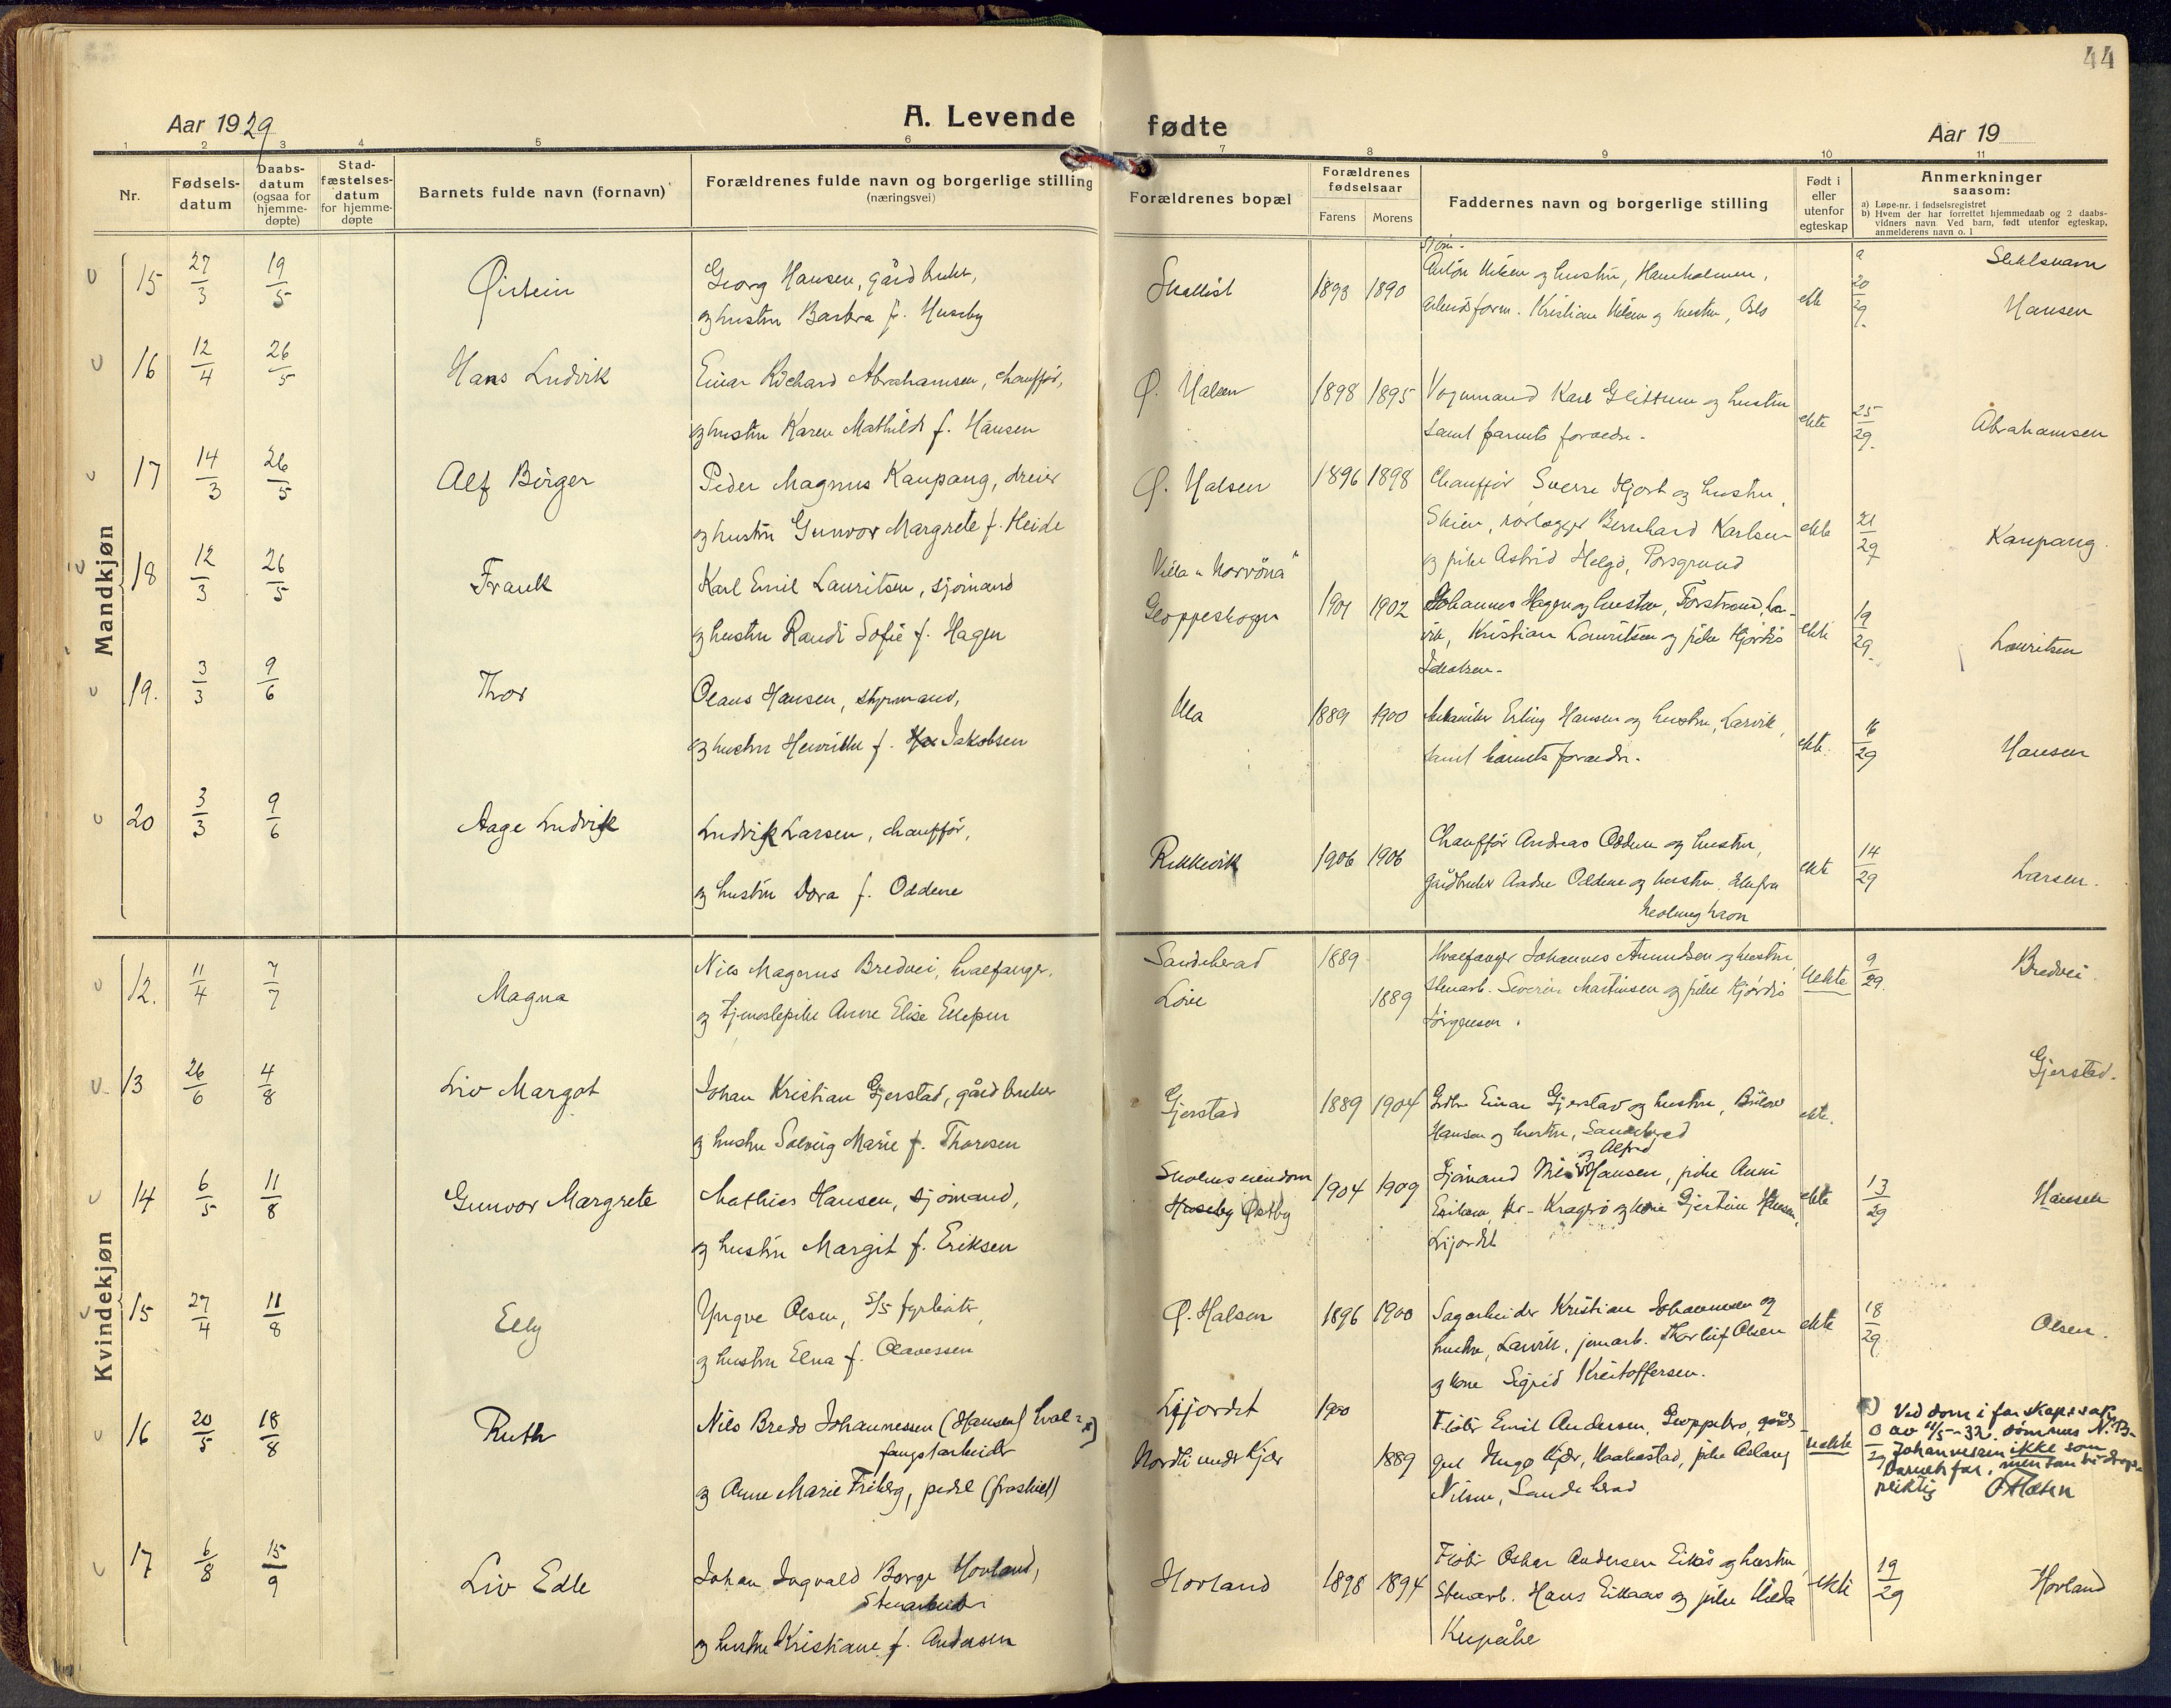 44
Aar 1929
A. Levende
fødte
Aar 19
1 2 3 4 5 6 7 8 9 10 11
Nr.
Fødsels-
datum
Daabs-
datum
(ogsaa for
hjemme-
døpte)
Stad-
fæstelses-
datum
for hjemme-
døpte
Barnets fulde navn (fornavn)
Forældrenes fulde navn og borgerlige stilling
(næringsvei)
Forældrenes bopæl
Forældrenes
fødselsaar
Farens Morens
Faddernes navn og borgerlige stilling
Født i
eller
utenfor
egteskap
Anmerkninger
saasom:
a) Løpe-nr. i fødselsregistret
b) Hvem der har forrettet hjemmedaab og 2 daabs-
vidners navn. Ved barn, født utenfor egteskap,
anmelderens navn o. l
Mandkjøn
15 27/3 19/5 Øistein
Georg Hansen, gårdbruker,
og hustru Barbra f. Huseby
1893 1890
og hustru, Hameholmen,
Kristian Nilsen og hustru, Oslo
ekte
a 20/29.
Slektsnavn
Hansen
16 12/4 26/5 Hans Ludvik
Einar Richard Abrahamsen, chauffør,
og hustru Karen Mathilde f. Hansen
Ø. Halsen 1898 1895
Vognmand Karl Glittum og hustru
samt barnets forældre.
ekte 25/29. Abrahamsen
17 14/3 26/5 Alf Birger
Peder Magnus Kaupang, dreier
og hustru Gunvor Margrete f. Heide
Ø. Halsen 1896 1898
Chauffør Sverre Hjort og hustru,
Skien, rørlegger Bernhard Karlsen
og pike Astrid Helgø, Porsgrund
ekte 21/29 Kaupang.
18 12/3 26/5 Frank
Karl Emil Lauritsen, sjömand
og hustru Randi Sofie f. Hagen
Villa "Norröna"
Gloppeskogen 1901 1902
Johannes Hagen og hustru, Torstrand, La-
vik, Kristian Lauritsen og pike Hjørdis
ekte 19/29. Lauritsen
19. 3/3 9/6 Thor
Olaus Hansen, styrmand,
og hustru Henriette f. Jakobsen
Ula 1889 1900
Mekaniker Erling Hansen og hustru, Larvik,
samt barnets forældre.
ekte. 16/29 Hansen
20 3/3 9/6 Aage Ludvik
Ludvik Larsen, chauffør,
og hustru Dora f. Oddene
Rekkevik 1906 1906
Chauffør Andreas Oddene og hustru,
gårdbruker Andre Oddene og hustru
ekte 14/29 Larsen.
Kvindekjøn
12. 11/4 7/7 Magna
Nils Magnus Bredvei, hvalfanger,
og tjenestepike Anne Elise Ellefsen
Sandeherad 1889
Løve 1889
Hvalfanger Johannes Amundsen og hustru,
Stenarb. Severin Martinsen og pike Hjørdis
Jørgensen.
Uekte 9/29. Bredvei.
13 26/6 4/8 Liv Margot
Johan Kristian Gjerstad, gårdbruker
og hustru Solveig Marie f. Thoresen
Gjerstad 1889 1904
Einar Gjerstad og hustru,
Hansen og hustru, Sandeherad
ekte. Gjerstad.
14 6/5 11/8 Gunvor Margrete
Mathias Hansen, sjömand,
og hustru Margit f. Eriksen
Skolens eiendom
Huseby Østby 1904 1909
og Alfred
Sjömand Nils Hansen, pike Anni
Eriksen, Kragerø og kone Gjertine Hansen,
Lijordet
ekte 13/29 Hansen
15 27/4 11/8 Elly
Yngve Olsen, S/S fyrbøter,
og hustru Elna f. Olavessen
Ø. Halsen 1896 1900
Sagarbeider Kristian Johannesen og
hustru, Larvik, jernarb. Thorleif Olsen
og kone Sigrid Kristoffersen.
ekte 18/29. Olsen.
16 20/5 18/8 Ruth
Nils Bredo Johannessen (Hansen) hval-
fangstarbeider
og Anne Marie Friberg, (fraskilt)
Lijordet 1900
Nordli under Kjær 1889
Emil Andersen, Gloppebro, gård-
Hugo Kjær, Haakestad, pike Aslaug
Nilsen, Sandeherad
uekte
Ved dom i farskapssak
av 11/5-32 dømmes N. B.
Johannessen ikke som
barnets far, men som bidrags-
pliktig
17 6/8 15/9 Liv Edle
Johan Ingvald Borge Hovland,
Stenarbeider
og hustru Kristiane f. Andersen
Hovland 1898 1894
Oskar Andersen Eikås og hustru,
Stenarb. Hans Eikaas og pike Hilda
ekte 19/29 Hovland